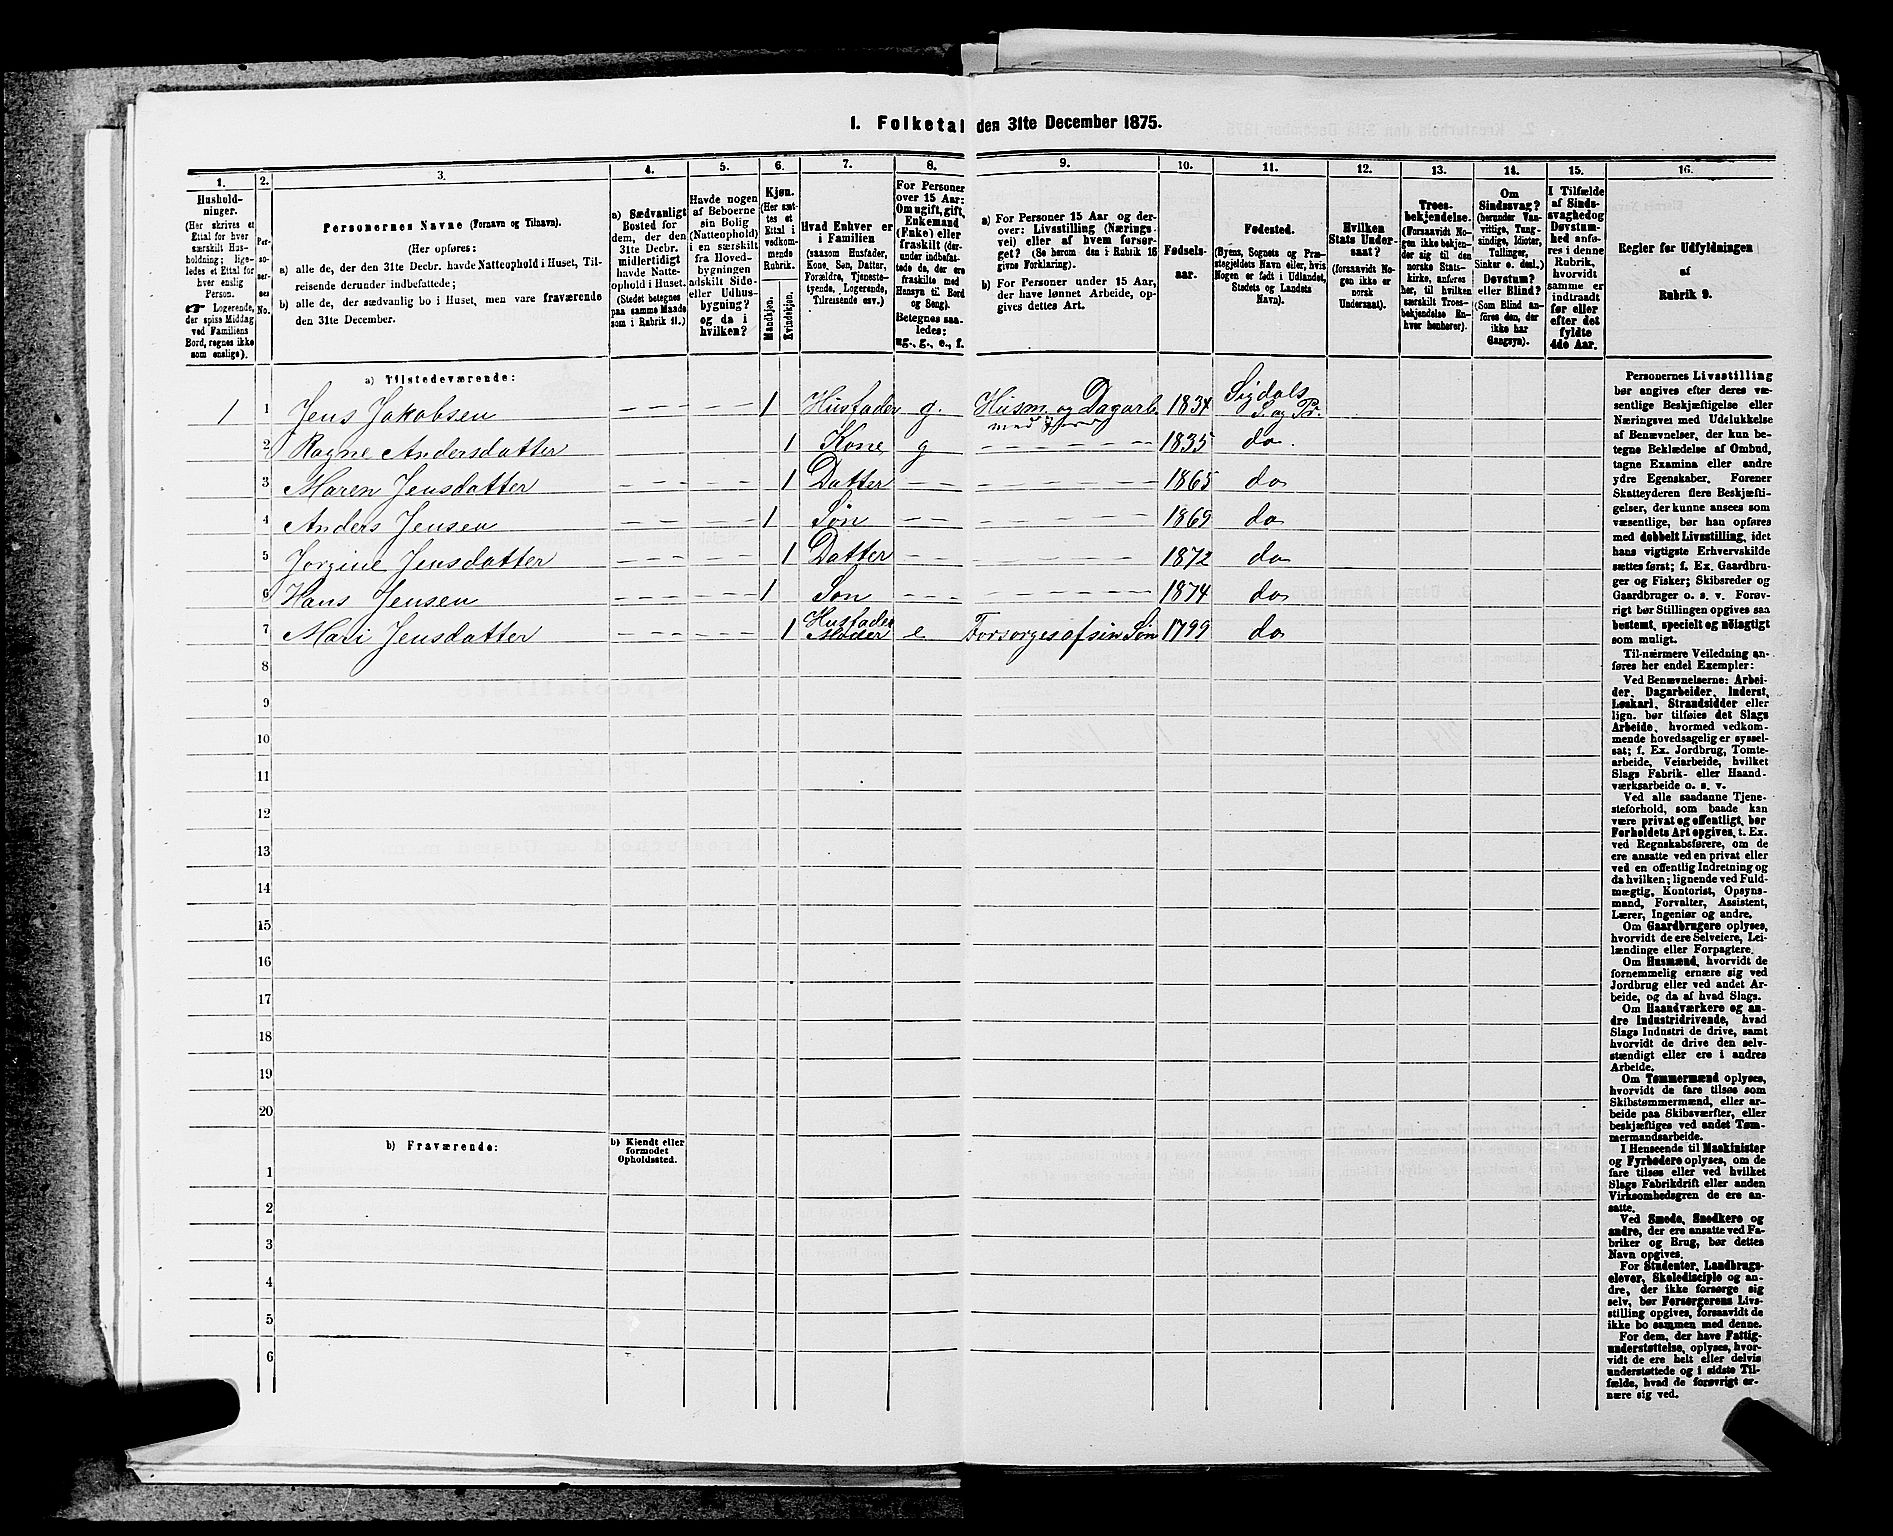 1. Folketal den 31te December 1875.
1.
Hushold-
ninger.
(Her skrives et
Ettal for hver
særskilt Hus-
holdning; lige-
ledes et Ettal for
hver enslig
Person.
☛ Logerende,
der spise Middag
ved Familiens
Bord, regnes ikke
som enslige).
2.
Per-
soner-
nes
No.
3.
Personernes Navne (Fornavn og Tilnavn).
(Her opføres:
a) alle de, der den 31te Decbr. havde Natteophold i Huset, Til-
reisende derunder indbefattede;
b) alle de, der sædvanlig bo i Huset, men vare fraværende
den 31te December.
4.
a) Sædvanligt
Bosted for
dem, der den
31te Decbr.
midlertidigt
havde Natte-
ophold i Huset.
(Stedet betegnes
paa samme Maade
som i Rubrik 11.)
5.
Havde nogen
af Beboerne
sin Bolig
(Natteophold)
i en særskilt
fra Hoved-
bygningen
adskilt Side-
eller Udhus-
bygning?
og da i
hvilken?
6.
Kjøn.
(Her sæt-
tes et
Ettal i
vedkom-
mende
Rubrik.
Mandkjøn.
Kvindekjøn.
7.
Hvad Enhver er
i Familien
(saasom Husfader,
Kone, Søn, Datter,
Forældre, Tjeneste-
tyende, Logerende,
Tilreisende osv.)
8.
For Personer
over 15 Aar:
Om ugift, gift,
Enkemand
(Enke) eller
fraskilt (der-
under indbefat-
tede de, der ere
fraskilte med
Hensyn til Bord
og Seng).
Betegnes saa-
ledes:
ug., g., e., f.
9.
a) For Personer 15 Aar og der-
over: Livsstilling (Nærings-
vei) eller af hvem forsør-
get? (Se herom den i Rubrik 16
givne Forklaring).
b) For Personer under 15 Aar,
der have lønnet Arbeide, op-
gives dettes Art.
10.
Fødsels-
aar.
11.
Fødested.
(Byens, Sognets og Præ-
stegjeldets Navn eller, hvis
Nogen er født i Udlandet,
Stedets og Landets
Navn).
12.
Hvilken
Stats Under-
saat?
(forsaavidt No-
gen ikke er
norsk
Undersaat).
13.
Troes-
bekjendelse.
(Forsaavidt No-
gen ikke bekjen-
der sig til den
norske Stats-
kirke, anføres
her, til hvilken
særskilt Troes-
bekjendelse En-
hver henhører).
14.
Om
Sindssvag?
(herunder Van-
vittige, Tung-
sindige, Idioter,
Tullinger,
Sinker o. desl.)
Døvstum?
eller Blind?
(Som Blind an-
føres den, der
ikke har
Gangsyn).
15.
I Tilfælde
af Sinds-
svaghed og
Døvstum-
hed anfø-
res i denne
Rubrik,
hvorvidt
samme er
indtraadt
før eller
efter det
fyldte
4de Aar.
16.
Regler for Udfyldningen
af
Rubrik 9.
a) Tilstedeværende:
1 1 Jens Jakobsen 1 Husfader g. Husm og Dagarb. med Jord 1834 Sigdals S. og Pr.
2 Ragne Andersdatter 1 Kone g 1835 do.
3 Maren Jensdatter 1 Datter 1865 do
4 Anders Jensen 1 Søn 1869 do
5 Jørgine Jensdatter 1 Datter 1872 do
6 Hans Jensen 1 Søn 1874 do
7 Mari Jensdatter 1 Husfader Moder e Forsørges af sin Søn 1799 do
8
9
10
11
12
13
14
15
16
17
18
19
20
b) Fraværende:
b) Kjendt eller
formodet
Opholdssted.
1
2
3
4
5
6
Personernes Livsstilling
bør angives efter deres væ-
sentlige Beskjæftigelse eller
Næringsvei med Udelukkelse
af Benævnelser, der kun be-
tegne Beklædelse af Ombud,
tagne Examina eller andre
ydre Egenskaber. Forener
Skatteyderen flere Beskjæfti-
gelser, der kunne ansees som
væsentlige, bør han opføres
med dobbelt Livsstilling, idet
hans vigtigste Erhvervskilde
sættes først; f. Ex. Gaardbru-
ger og Fisker; Skibsreder og
Gaardbruger o. s. v. Forøv-
rigt bør Stillingen opgives saa
bestemt, specielt og nöiagtigt
som muligt.
Til nærmere Veiledning an-
føres her endel Exempler:
Ved Benævnelserne: Arbei-
der, Dagarbeider, Inderst,
Løskarl, Strandsidder eller
lign. bør tilføies det Slags
Arbeide, hvormed vedkom-
mende hovedsagelig er syssel-
sat; f. Ex. Jordbrug, Tomte-
arbeide, Veiarbeide, hvilket
Slags Fabrik- eller Haand-
værksarbeide o. s. v.
Ved alle saadanne Tjene-
steforhold, som baade kan
være privat og offentligt, bør
Forholdets Art opgives, t. Ex.
ved Regnskabsførere, om de
ere ansatte ved en privat eller
ved en offentlig Indretning og
da hvilken; lignende ved Fuld-
mægtig, Kontorist, Opsyns-
mand, Forvalter, Assistent,
Lærer, Ingeniør og andre.
Om Gaardbrugere oplyses,
hvorvidt de ere Selveiere, Lei-
lændinge eller Forpagtere.
Om Husmænd, hvorvidt de
fornemmelig ernære sig ved
Jordbrug eller ved andet Ar-
beide, og da af hvad Slags.
Om Haandværkere og an-
dre Industridrivende, hvad
Slags Industri de drive, samt
hvorvidt de drive den selv-
stændigt eller ere i andres
Arbeide.
Om Tømmermænd oplyses,
hvorvidt de fare tilsøs som
Skibstømmermænd, eller ar-
beide paa Skibsværfter, eller
beskjæftiges ved andet Tøm-
mermandsarbeide.
I Henseende til Maskinister
og Fyrbødere oplyses, om de
fare tilsøs eller ved hvilket
Slags Fabrikdrift eller anden
Virksomhedsgren de ere an-
satte.
Ved Smede, Snedkere og
andre, der ere ansatte ved Fa-
briker og Brug, bør dettes
Navn opgives.
For Studenter, Landbrugs-
elever, Skoledisciple og an-
dre, der ikke forsørge sig
selv, bør Forsørgerens Livs-
stilling opgives, forsaavidt de
ikke bo sammen med denne.
For dem, der have Fattig-
understøttelse, oplyses, hvor-
vidt de ere helt eller delvis
understøttede og i sidste Til-
fælde, hvad de forøvrigt er-
nære sig ved.